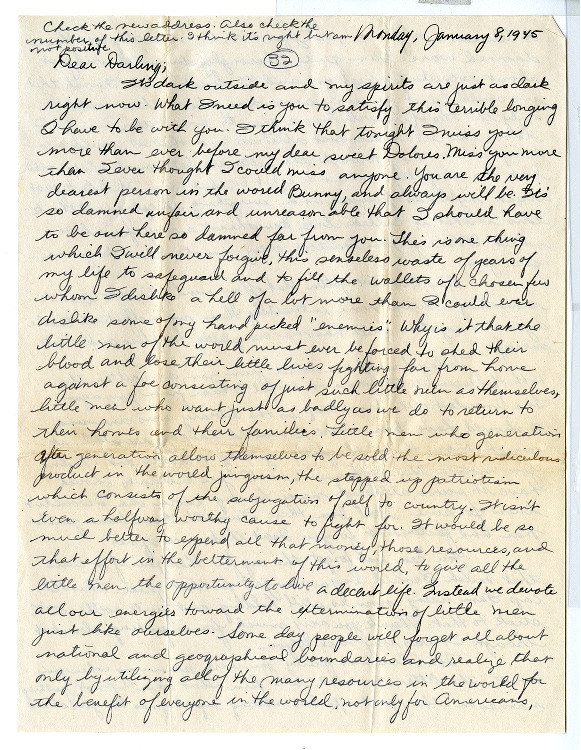 Check the new address. Also check the
number of this letter. I think it's right but am
not positive
Monday, January 8, 1945
32
Dear Darling;
It's dark outside and my spirits are just as dark
right now. What I need is you to satisfy this terrible longing
I have to be with you. I think that tonight I miss you
more than ever before my dear sweet Dolores. Miss you more
than I ever thought I could miss anyone. You are the very
dearest person in the world Bunny, and always will be. It's
so damned unfair and unreasonable that I should have
to be out here so damned far from you. This is one thing
which I will never forgive, this senseless waste of years of
my life to safeguard and to fill the wallets of a chosen few
whom I dislike a hell of a lot more than I could ever
dislike some of my hand picked "enemies". Why is it that the
little men of the world must ever be forced to shed their
blood and lose their little lives fighting far from home
against a foe consisting of just such little men as themselves,
little men who want just as badly as we do to return to
their homes and their families. Little men who generation
after generation allow themselves to be sold the most ridiculous
product in the world jingoism, the stepped up patriotism
which consists of the subjugation of self to country. It isn't
even a halfway worthy cause to fight for. It would be so
much better to expend all that money, those resources, and
that effort in the betterment of this world, to give all the
little men the opportunity to live a decent life. Instead we devote
all our energies toward the extermination of little men
just like ourselves. Some day people will forget all about
national and geographical boundaries and realize that
only by utilizing all of the many resources in the world for
the benefit of everyone in the world, not only for Americans,